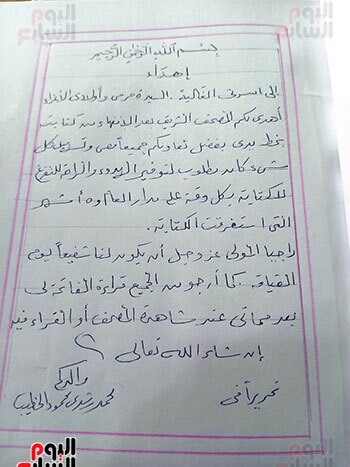 اليوم السابع
بسم الله الرحمن الرحيم
إهداء
إلى أسرتى الغالية . السيدة حرمى وأولادى الأعزاء
أهدى لكم المصحف الشريف بعد الانتهاء من كتابته
بخط يدى بفضل تعاونكم جميعا معى وتسهيل كل
شىء كان مطلوب لتوفير الهدوء والراحة للتفرغ
للكتابة بكل دقة على مدار العام و٥ أشهر
التى استغرقت الكتابة .
راجيا المولى عز وجل أن يكون لنا شفيعاً يوم
القيامة . كما أرجو من الجميع قراءة الفاتحة لى
بعد مماتى عند مشاهدة المصحف أو القراءة فيه
إن شاء الله تعالى
والدكم
تحريرا فى
محمد رشدى محمود الخطيب
اليوم السابع